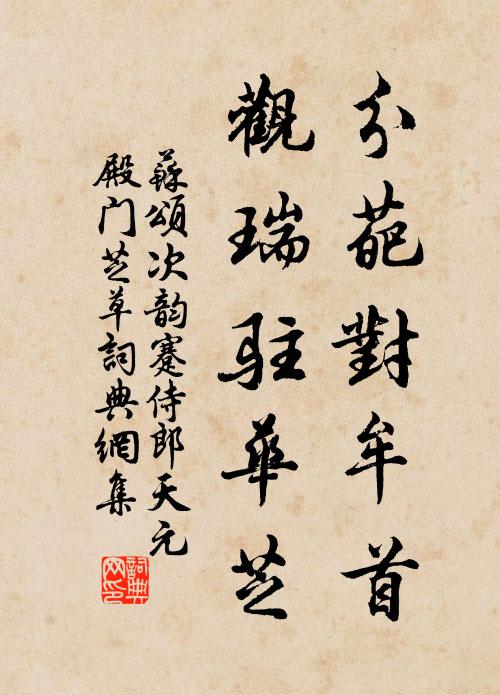 分葩對牟首
觀瑞駐華芝
蘇頌次韵蹇侍郎天元
殿门芝草詞典網集
詞典网印